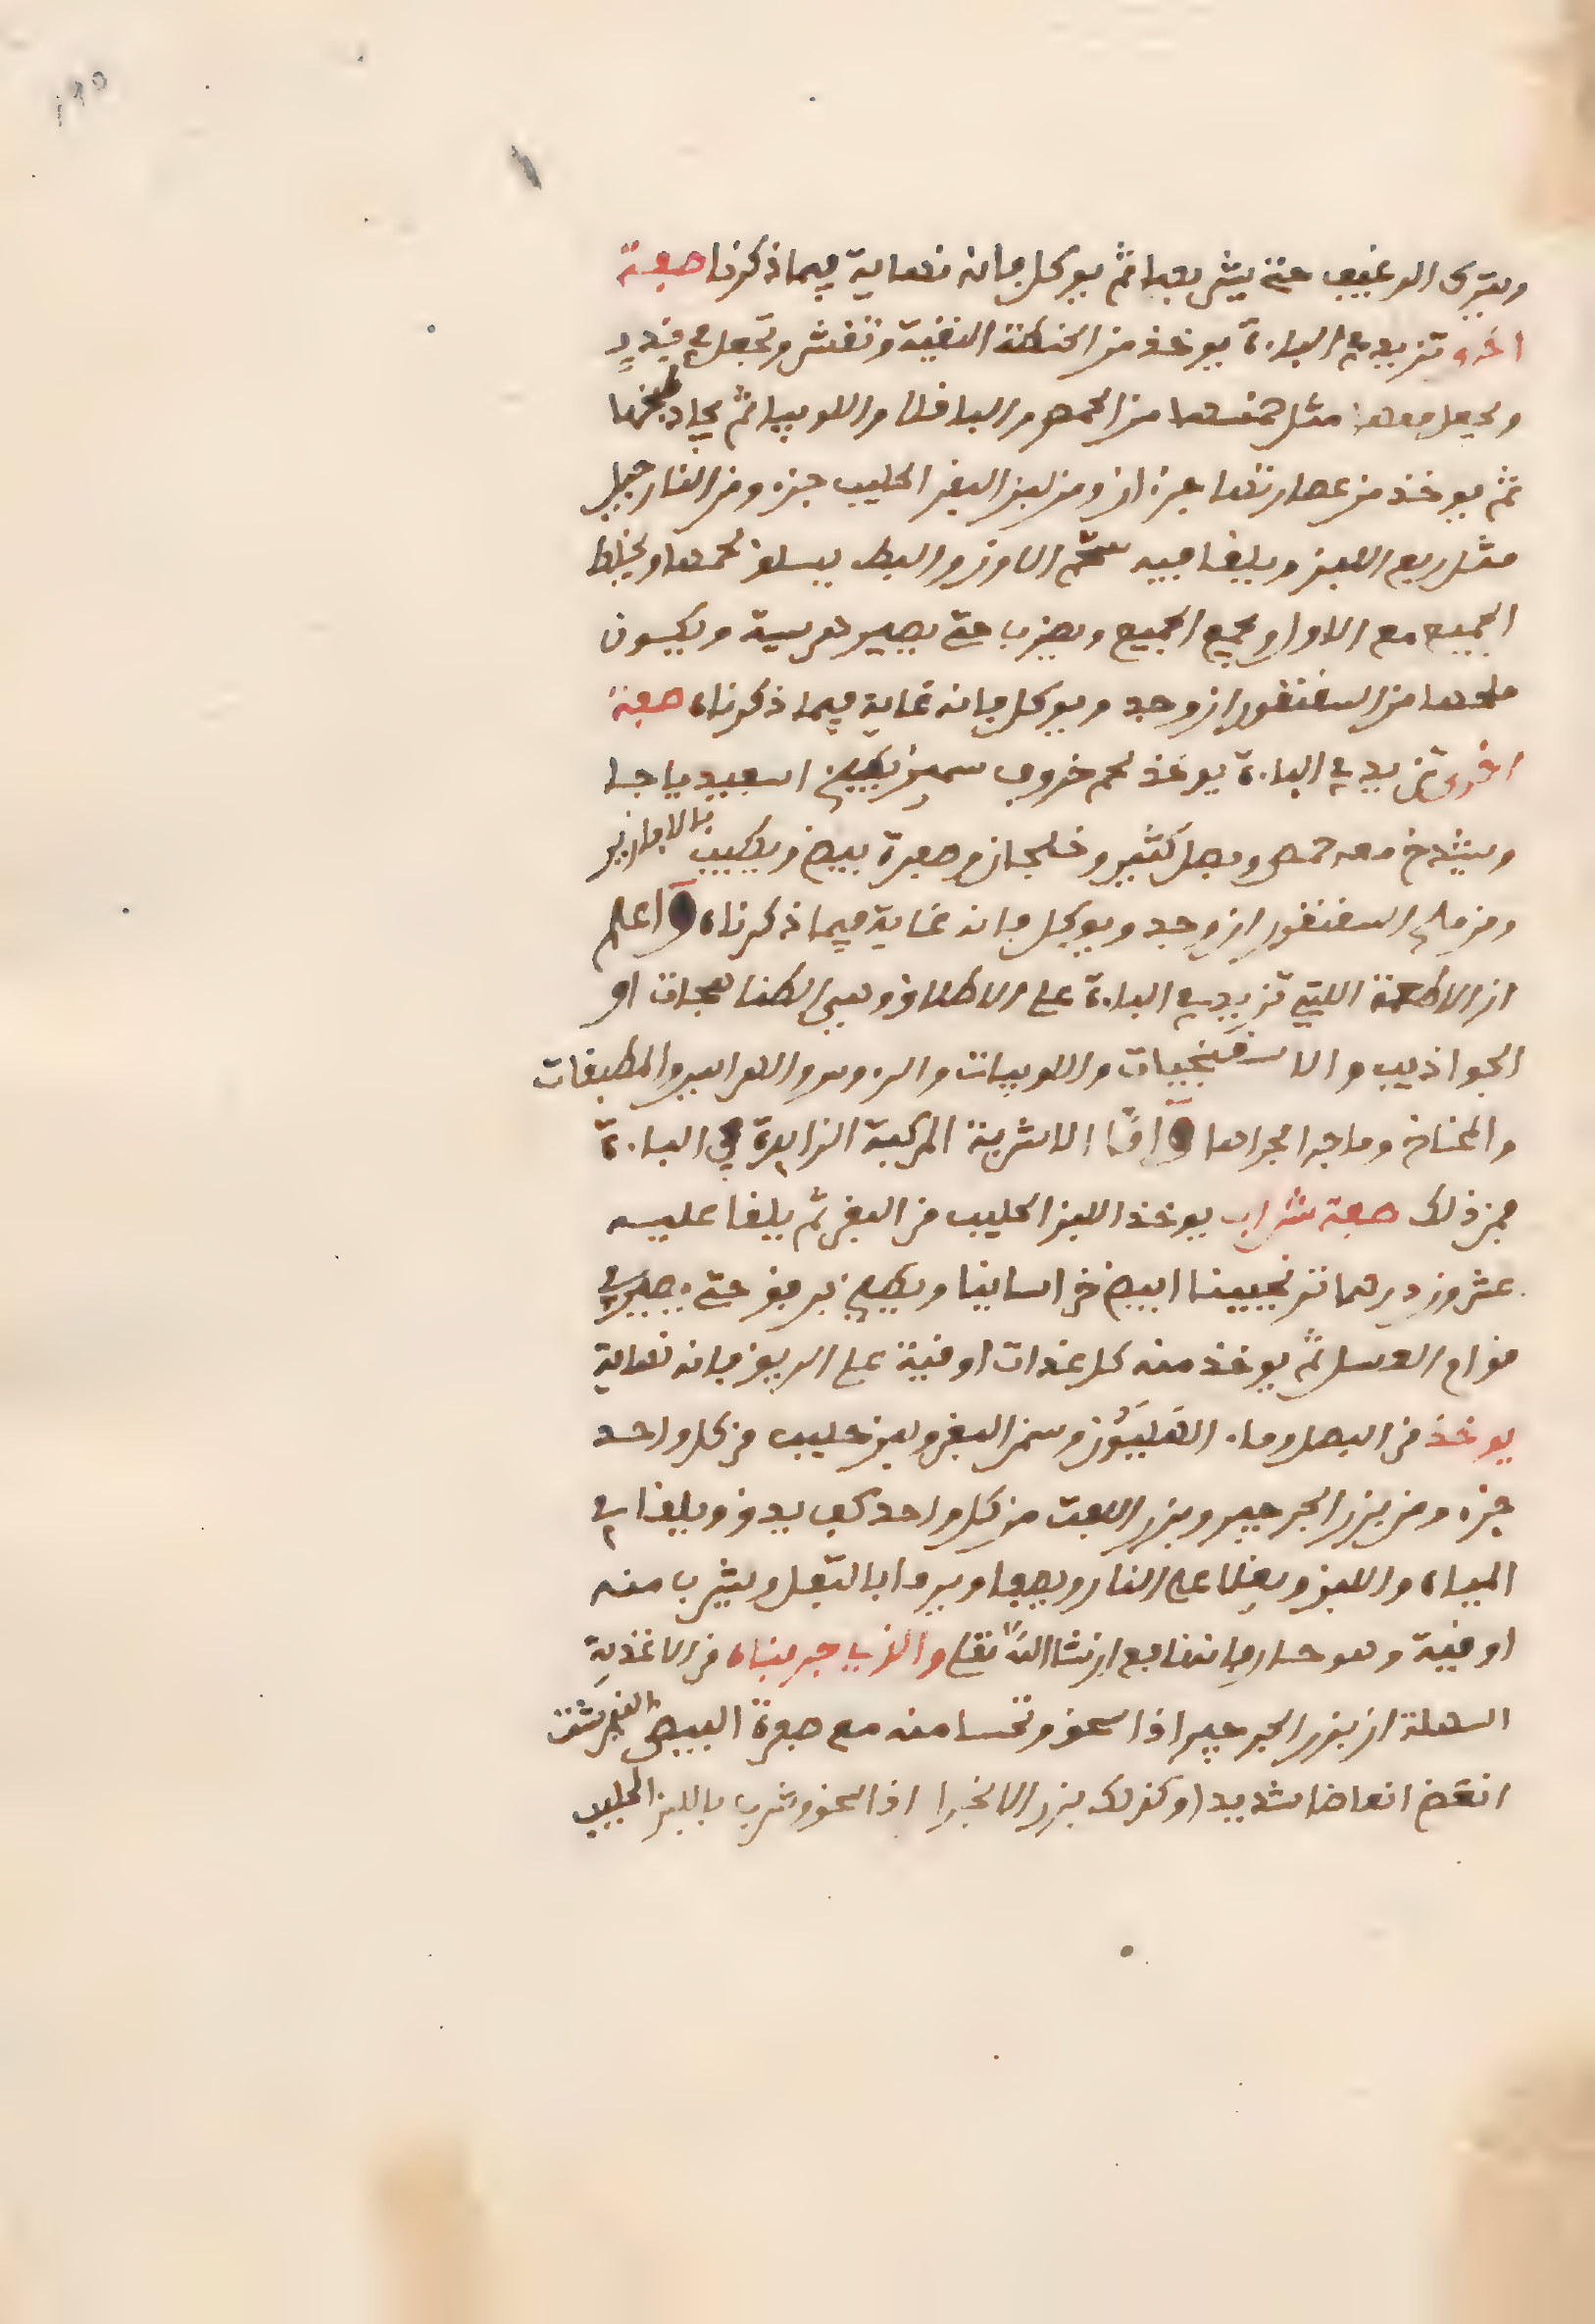 ١٩٥
ويترك الرغيف حتى يشربها ثم يوكل فانه نهاية فيما ذكرنا صفة
اخرى تزيد في الباءة يوخذ من الحنطة النقية وتقشر وتجعل في قدر
ويجعل معها مثل خمسها من الحمص والباقلا واللوبيا ثم يجاد طبخها
ثم يوخذ من عصارتها جزءان ومن لبن البقر الحليب جزء ومن النارجيل
مثل ربع اللبن ويلقا فيه شحم الاوز والبط يسلق لحمها ويخلط
الجميع مع الاول ويجمع الجميع ويضرب حتى يصير هريسة ويكون
ملحها من السقنقور ان وجد ويوكل فانه غاية فيما ذكرناه صفة
اخرى تزيد في الباءة يوخذ لحم خروف سمين يطبخ اسفيدياجا
ويشدخ معه حمص وبصل كثير وخلجان وصفرة بيض ويطيب بالابازير
ومن ملح السقنقور ان وجد ويوكل فانه غاية فيما ذكرناه واعلم
ان الاطعمة التي تزيد في الباءة على الاطلاق وهي الطباهجات او
الجواذيب والاسفنجيات واللوبيات والروس والهرايس والمطبقات
والمخاخ وما جرا مجراها واما الاشربة المركبة الزايدة في الباءة
فمن ذلك صفة شراب يوخذ اللبن الحليب من البقر ثم يلقا عليه
عشرون درهما ترنجبينا ابيض خراسانيا ويطبخ برفق حتى يصير في
قوام العسل ثم يوخذ منه كل غدات اوقية على الريق فانه نهاية
يوخذ من البصل وماء الهليون وسمن البقر ولبن حليب من كل واحد
جزء ومن بزر الجرجير وبزر اللفت من كل واحد كف يدق ويلقا في
المياه واللبن ويغلا على النار ويصفا ويرما بالثفل ويشرب منه
اوقية وهو حار فانه نافع ان شا الله تعلى والذي جربناه من الاغذية
السهلة ان بزر الجرجير اذا سحق وتحسا منه مع صفرة البيض النيمرشت
انعض انعاضا شديدا وكذلك بزر الانجرا اذا سحق وشرب باللبن الحليب